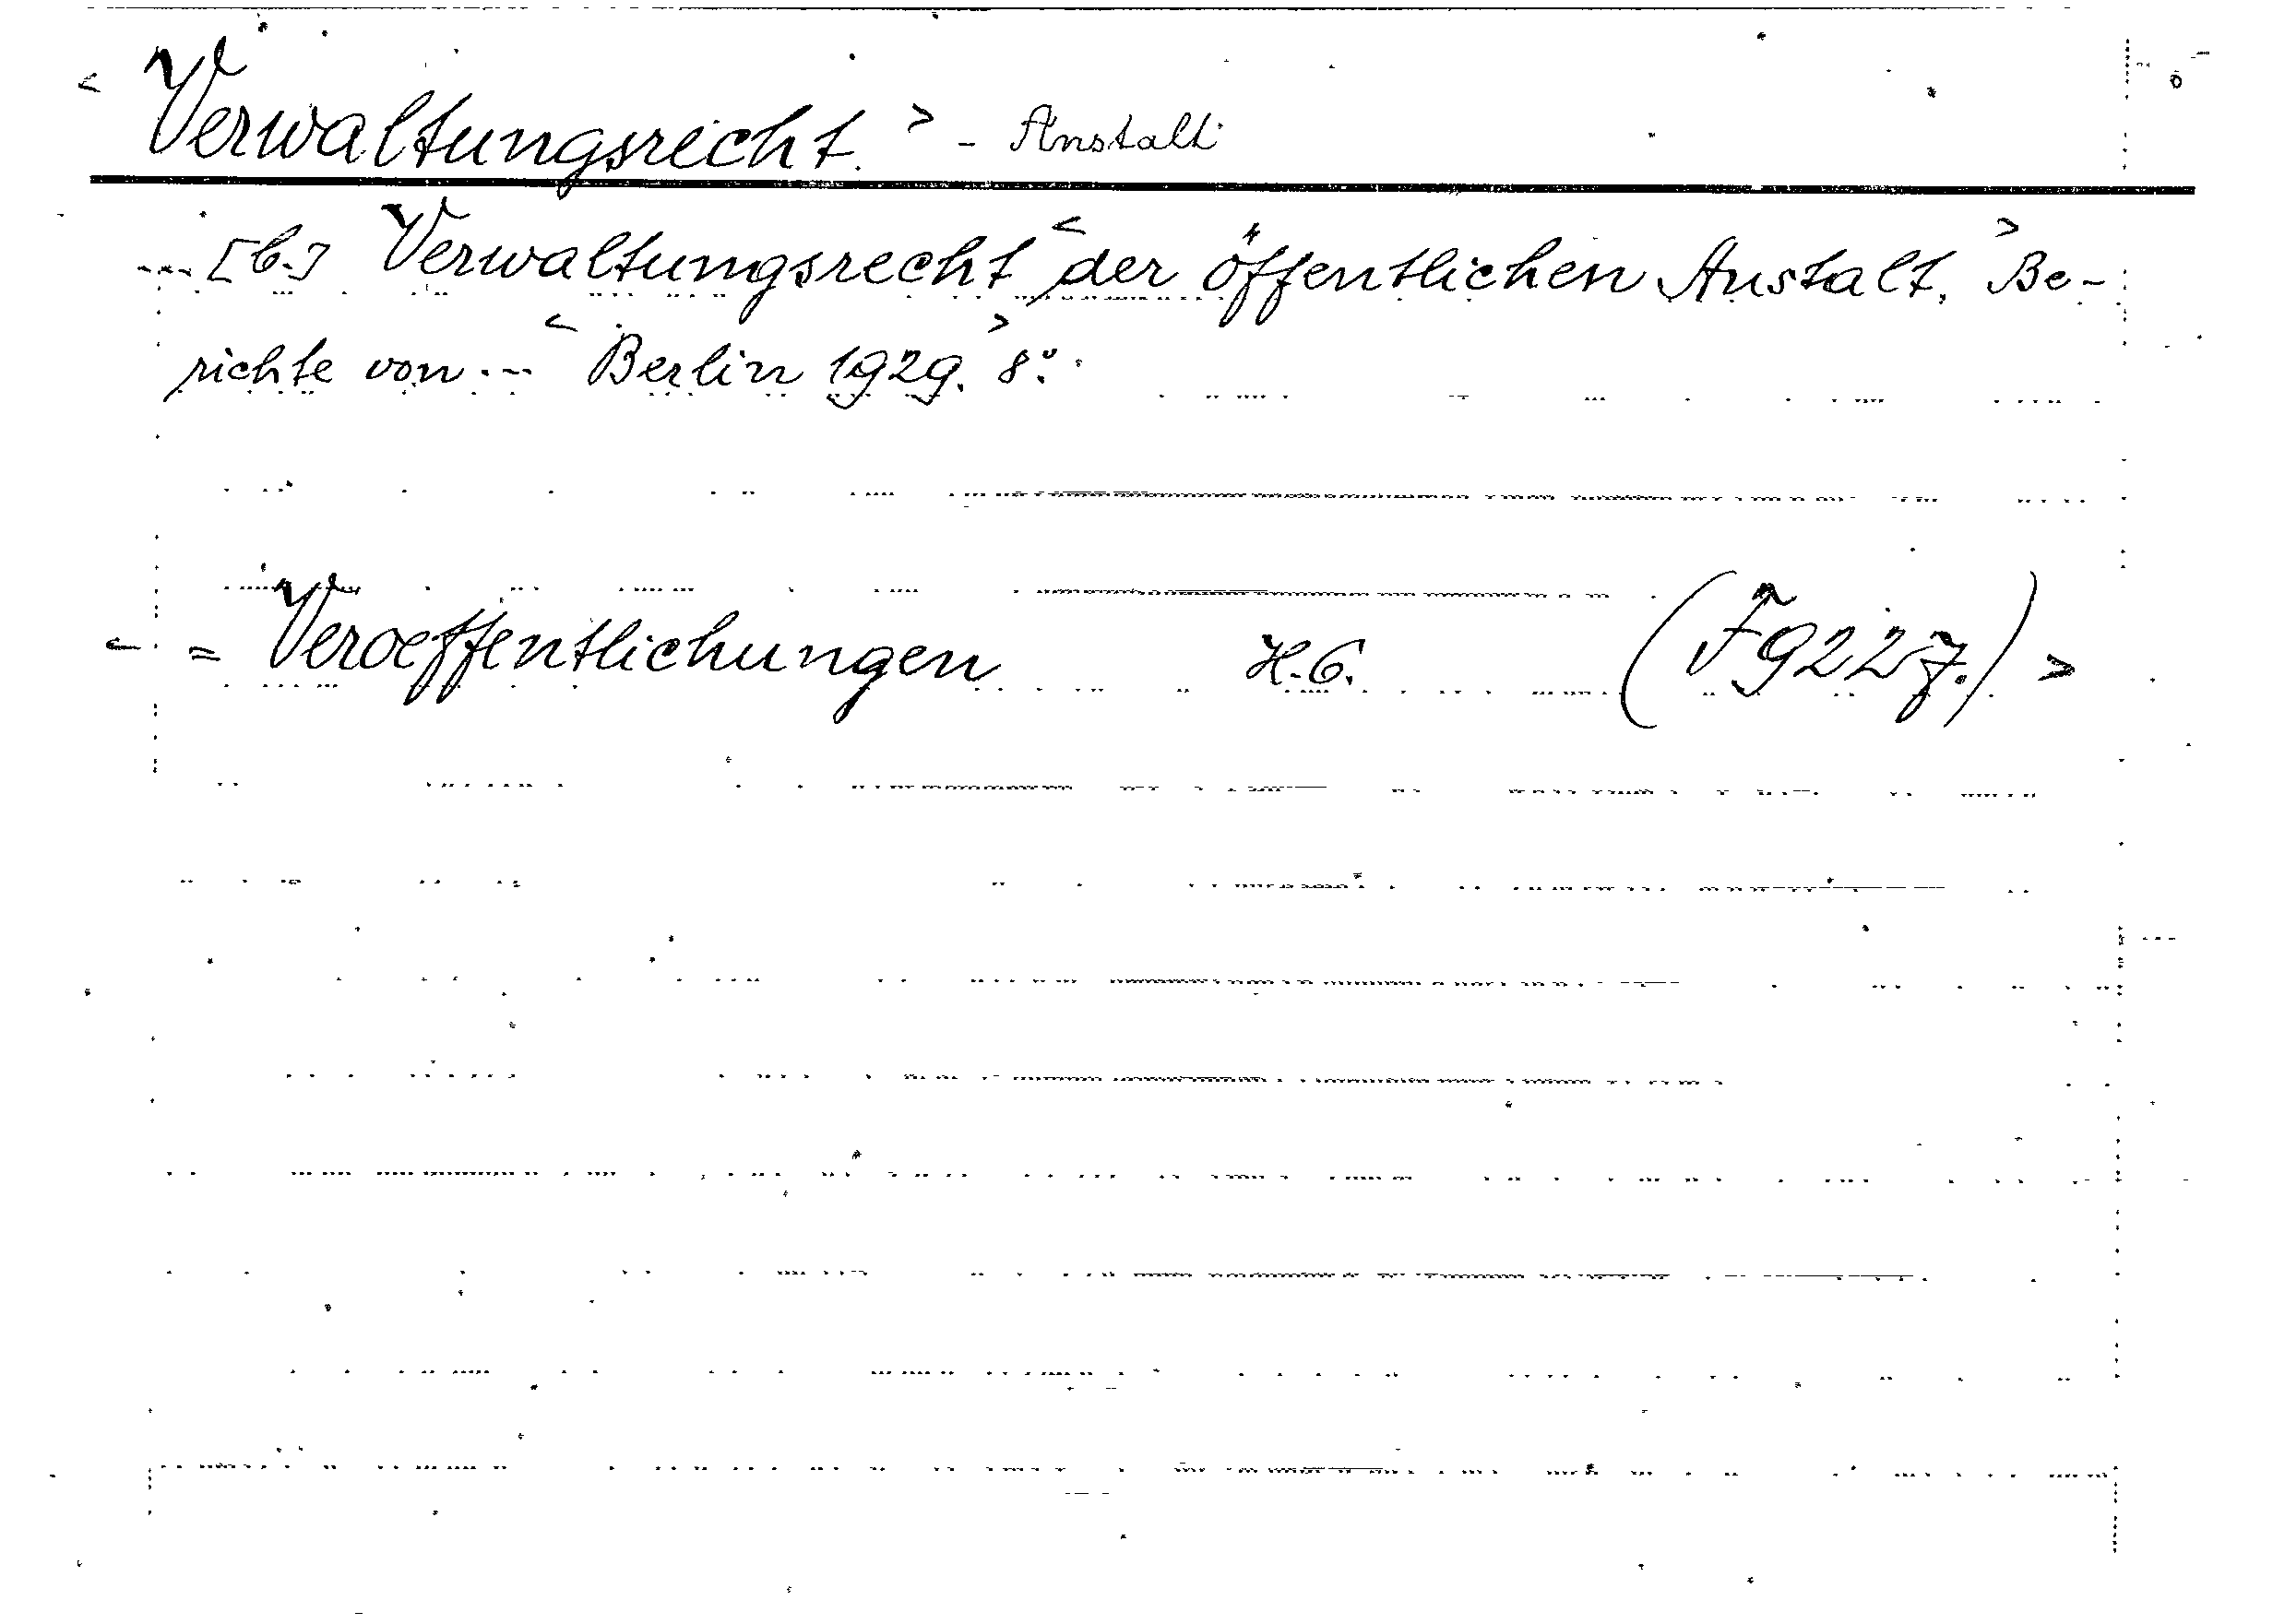 < Verwaltungsrecht. > - Anstalt
... [b.] Verwaltungsrecht < der öffentlichen Anstalt. > Be-
richte von ... < Berlin 1929. > 8°.
< = Veroeffentlichungen H. 6. (F 9227.) >